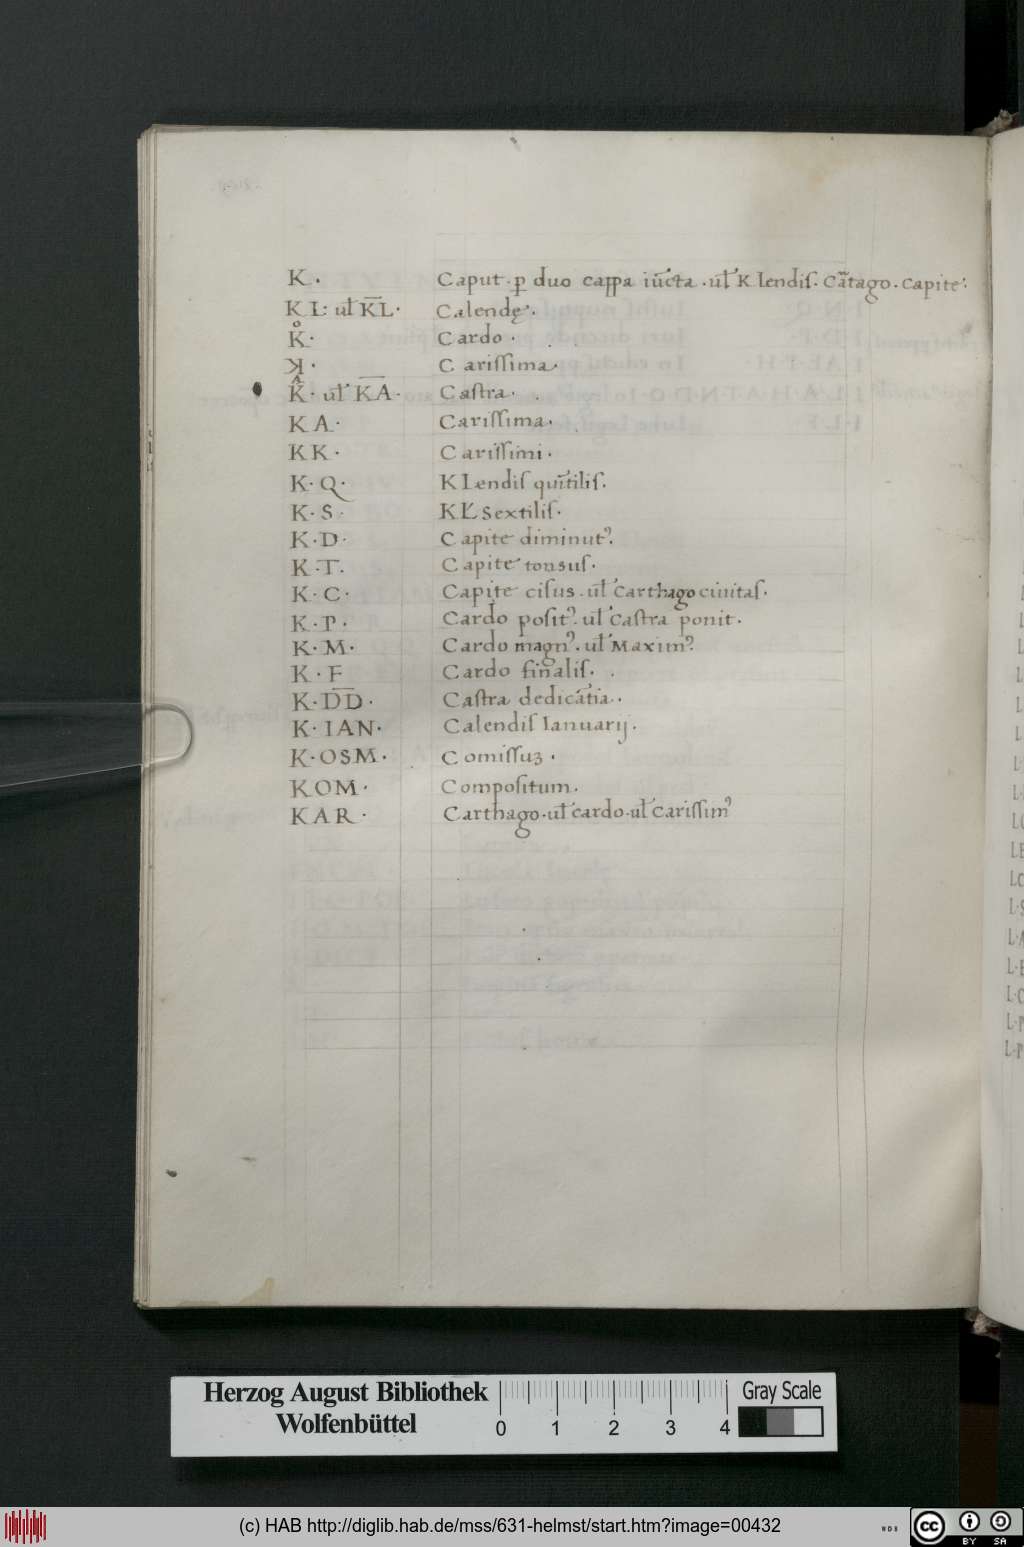 K · Caput · ꝑ duo cappa iūcta · ul̄ Klendiſ · Cãtago · capite ·
K L : ul̄ K̅L̅ · Calendę ·
K̊ · Cardo ·
ꓘ · C ariſſima ·
K̂ · ul̄ K̅A̅ · Caſtra ·
K A · Cariſſima ·
K K · C ariſſimi ·
K · Q · K Lendiſ quītiliſ ·
K · S · K L̄ Sextiliſ ·
K · D · C apite diminutꝰ ·
K · T · C apite tonsuſ ·
K · C · Capite ciſus · ul̄ Carthago ciuitaſ ·
K · P · Cardo poſitꝰ · ul̄ Caſtra ponit ·
K · M · Cardo magnꝰ · ul̄ Maximꝰ
K · F Cardo finaliſ ·
K · D̅D̅ · Caſtra dedicātia ·
K · IAN · Calendiſ Ianuarij ·
K · OSM · C omiſſuʒ ·
KOM · Compoſitum ·
KAR · Carthago · ul̄ cardo · ul̄ Cariſſimꝰ
Herzog August Bibliothek
Wolfenbüttel
0 1 2 3 4
Gray Scale
(c) HAB http://diglib.hab.de/mss/631-helmst/start.htm?image=00432
WDB
cc BY SA